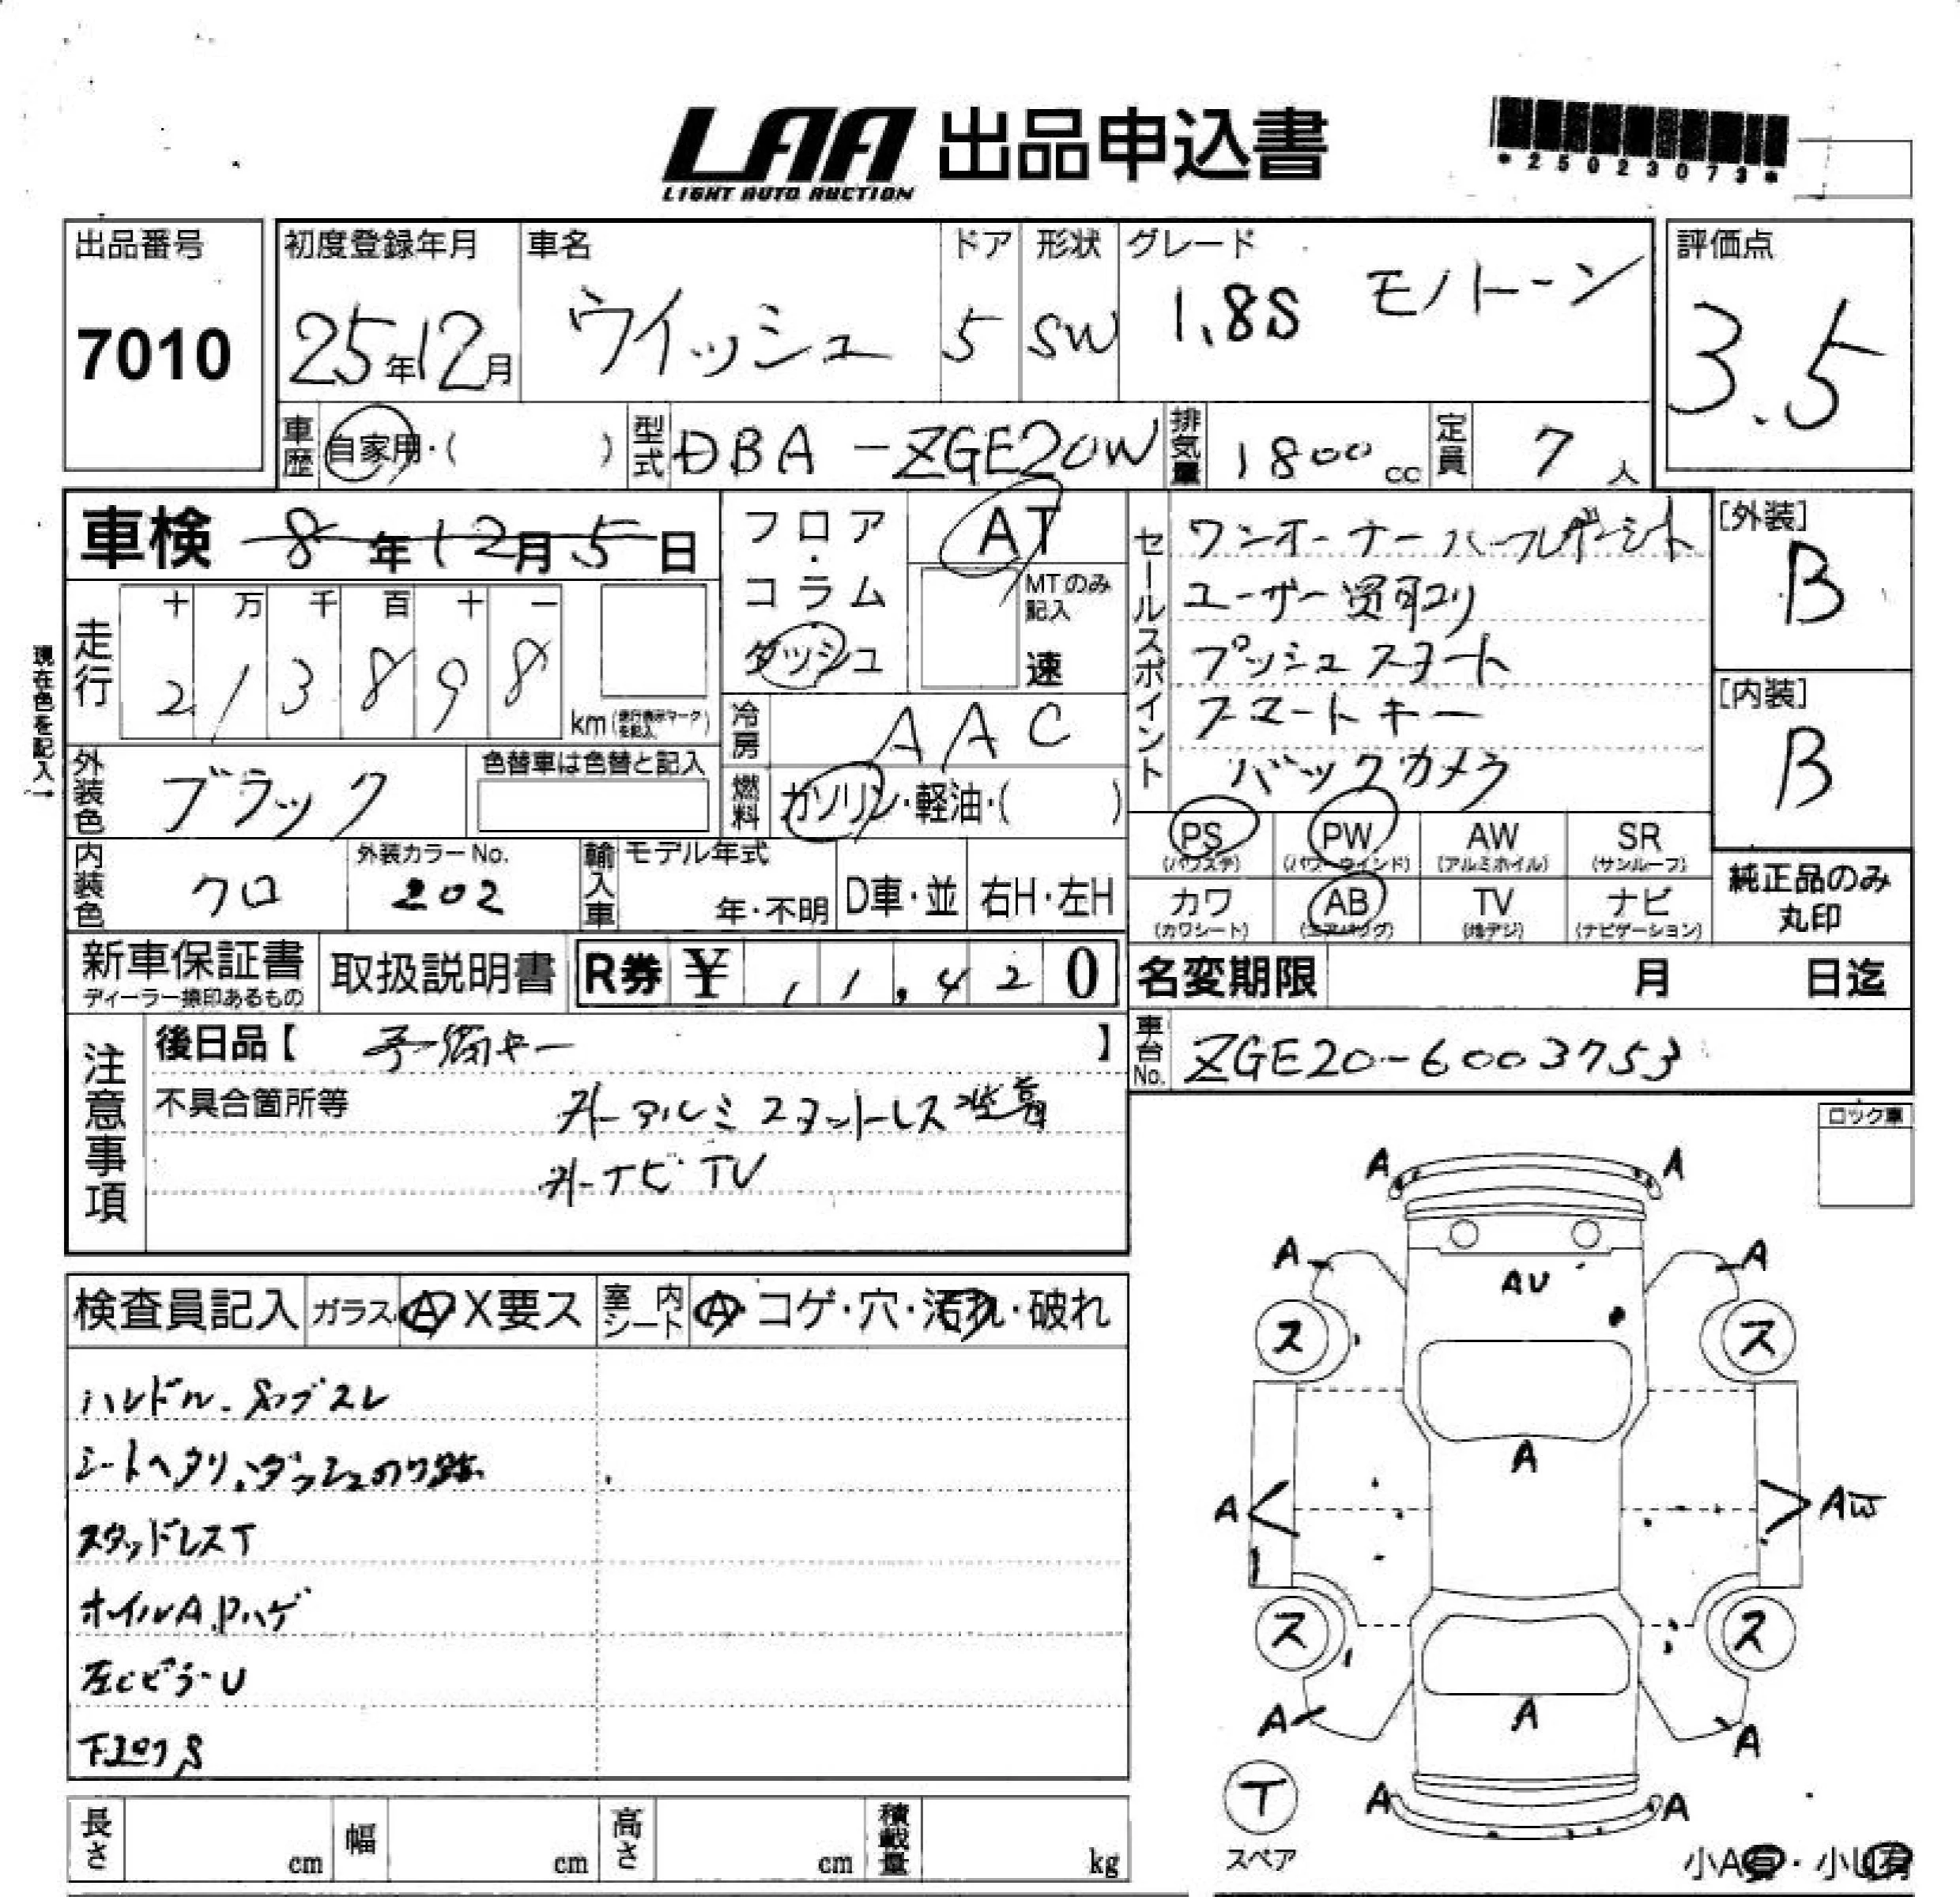 LAA 出品申込書
LIGHT AUTO AUCTION
*25023073*
出品番号
7010
初度登録年月
25年12月
車名
ウイッシュ
ドア
5
形状
SW
グレード
1.8S モノトーン
評価点
3.5
車歴
自家用・( )
型式
DBA-ZGE20W
排気量
1800cc
定員
7人
車検 8年12月5日
走行
十 万 千 百 十 一
2 1 3 8 9 8
km
現在色を記入→
外装色
ブラック
色替車は色替と記入
内装色
クロ
外装カラーNo.
202
輸入車
モデル年式
年・不明
D車・並
右H・左H
フロア
・
コラム
ダッシュ
AT
MTのみ
記入
速
冷房
AAC
燃料
ガソリン・軽油・( )
セールスポイント
ワンオーナー ハーフレザーシート
ユーザー買取り
プッシュスタート
スマートキー
バックカメラ
[外装]
B
[内装]
B
PS
(パワステ)
PW
(パワーウインド)
AW
(アルミホイル)
SR
(サンルーフ)
カワ
(カワシート)
AB
(エアバッグ)
TV
(地デジ)
ナビ
(ナビゲーション)
純正品のみ
丸印
新車保証書
ディーラー捺印あるもの
取扱説明書
R券 ¥ 11,420
名変期限 月 日迄
車台No.
ZGE20-6003753
注意事項
後日品【 予備キー 】
不具合箇所等
外アルミ スタットレス装着
外ナビ TV
ロック車
検査員記入
ガラス
A X要ス
室内シート
A・コゲ・穴・汚れ・破れ
ハンドル.
シートヘタリ.ダッシュのリ跡
スタッドレスT
ホイルA.Pハゲ
左CピラーU
S
A A
A A
AU
ス ス
A
A AW
ス ス
A A
A
T
スペア
A A
小A有・小U有
長さ cm
幅 cm
高さ cm
積載量 kg